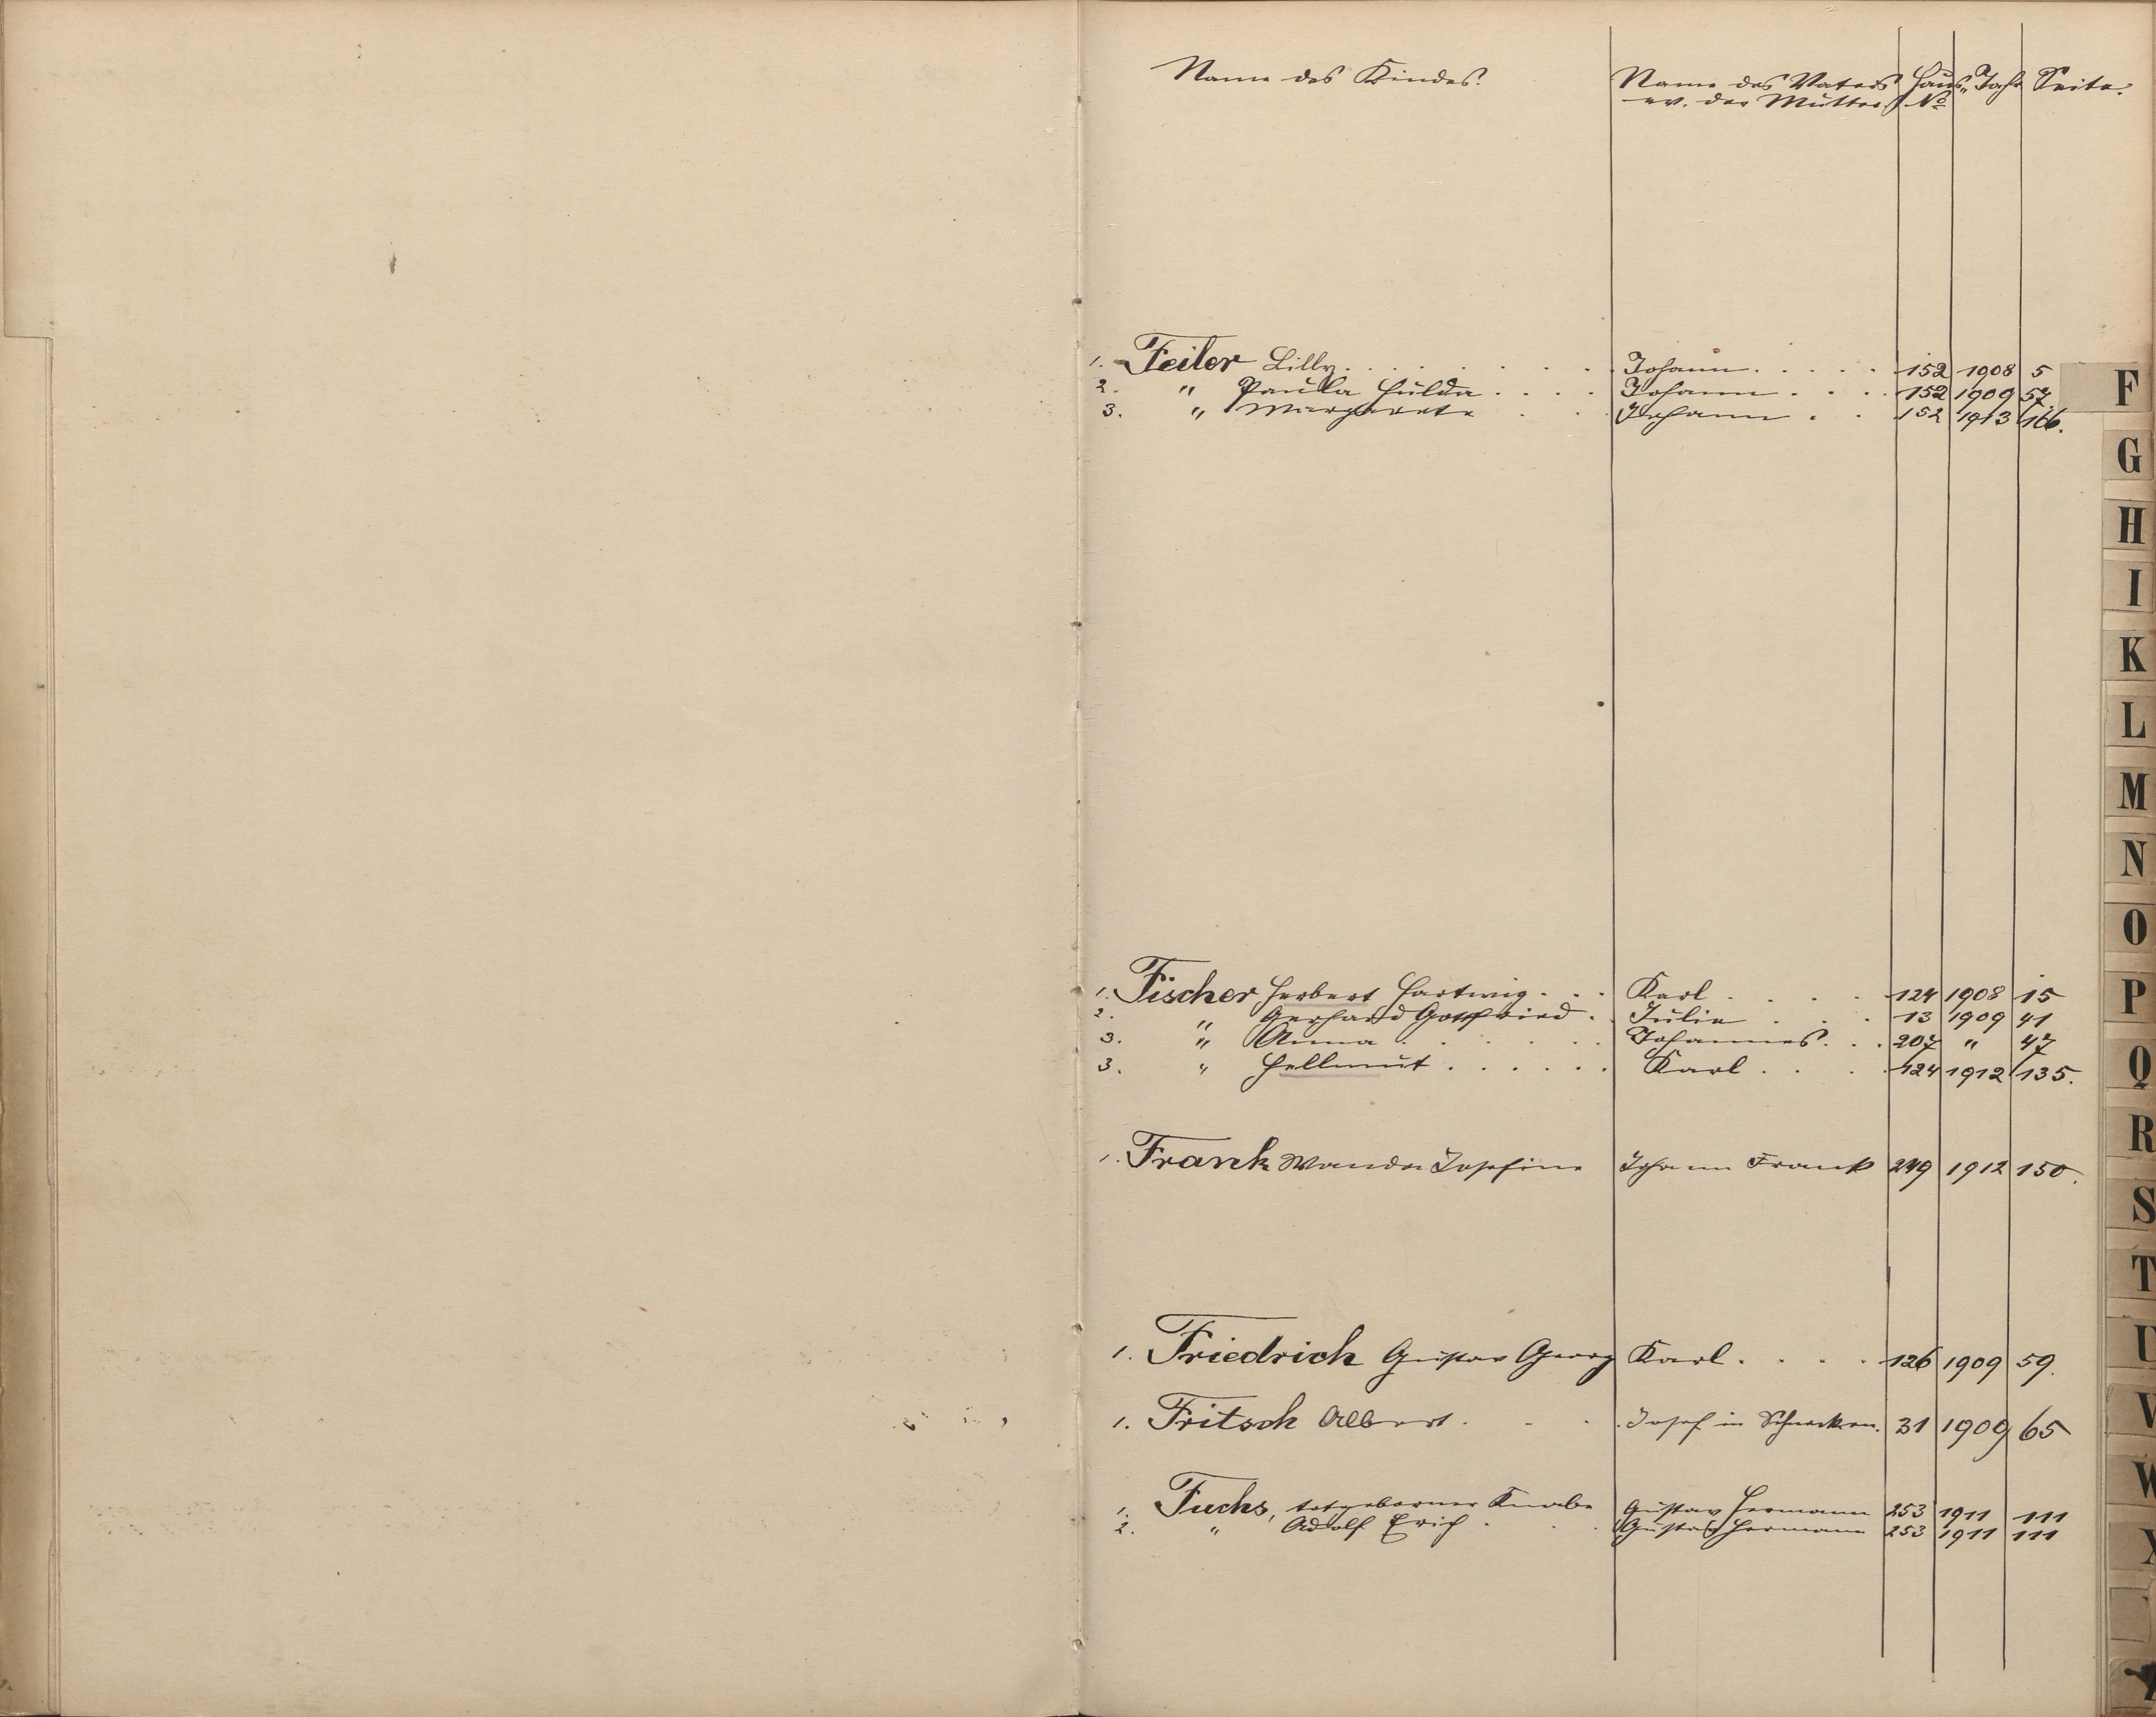 Name des Kindes. Name des Vaters Haus„ Jahr Seite.
ev. der Mutter No
1. Feiler Lilly. . . . . . . Johann. . . . . 152 1908 5
2. " Paula Hulda . . . . Johann . . . . 152 1909 57.
3. " Margarete . . . Johann . . 152 1913 166.
1. Fischer Herbert Hartwig . . . Karl . . . . 124 1908 15
2. " Gerhard Gottfried . Julie . . . 13 1909 41
3. " Anna . . . . . . Johannes. . . 207 " 47
3. " Hellmut . . . . . . Karl . . . 124 1912 135.
1. Frank Wanda Josefine Johann Frank 249 1912 150.
1. Friedrich Gustav Georg Karl . . . . 126 1909 59.
1. Fritsch Albert . . . . Josef in Schnecken. 31 1909 65
1. Fuchs, totgeborner Knabe Gustav Hermann 253 1911 111
2. " Adolf Erich . . . Gustav Hermann 253 1911 111
F
G
H
I
K
L
M
N
O
P
Q
R
S
T
U
V
W
X